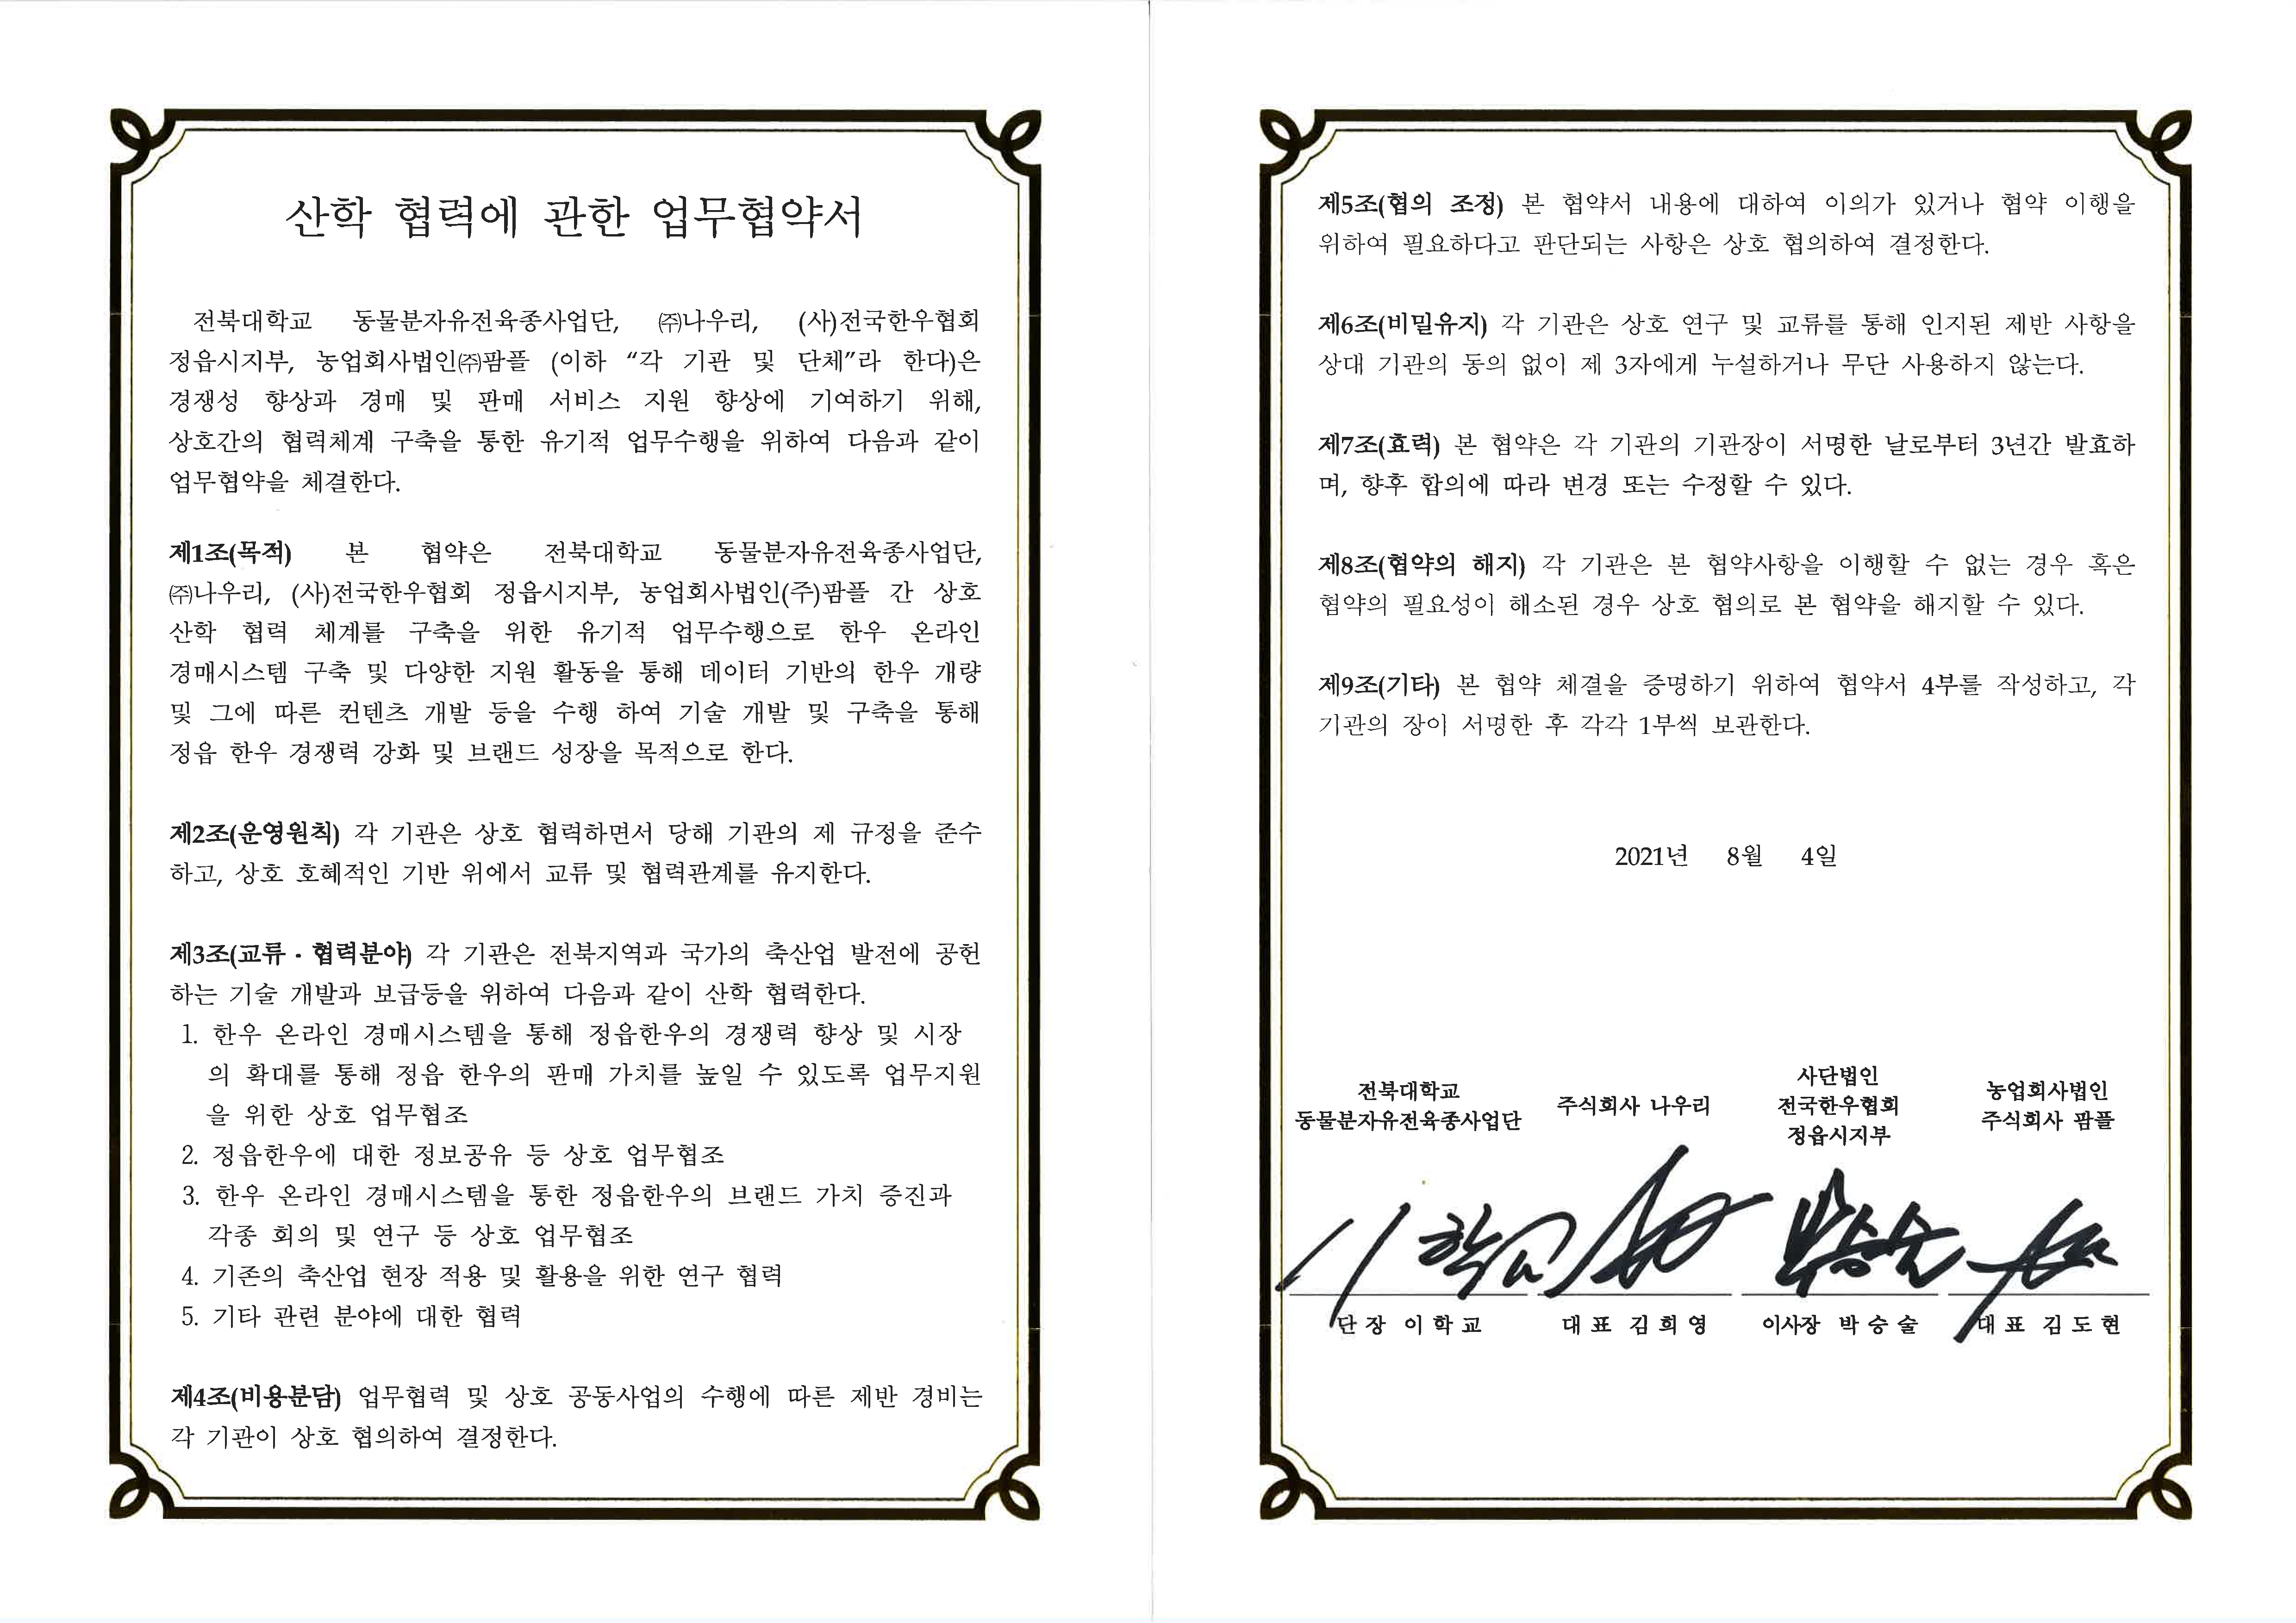 산학 협력에 관한 업무협약서
전북대학교 동물분자유전육종사업단, ㈜나우리, (사)전국한우협회
정읍시지부, 농업회사법인㈜팜플 (이하 “각 기관 및 단체”라 한다)은
경쟁성 향상과 경매 및 판매 서비스 지원 향상에 기여하기 위해,
상호간의 협력체계 구축을 통한 유기적 업무수행을 위하여 다음과 같이
업무협약을 체결한다.
제1조(목적) 본 협약은 전북대학교 동물분자유전육종사업단,
㈜나우리, (사)전국한우협회 정읍시지부, 농업회사법인(주)팜플 간 상호
산학 협력 체계를 구축을 위한 유기적 업무수행으로 한우 온라인
경매시스템 구축 및 다양한 지원 활동을 통해 데이터 기반의 한우 개량
및 그에 따른 컨텐츠 개발 등을 수행 하여 기술 개발 및 구축을 통해
정읍 한우 경쟁력 강화 및 브랜드 성장을 목적으로 한다.
제2조(운영원칙) 각 기관은 상호 협력하면서 당해 기관의 제 규정을 준수
하고, 상호 호혜적인 기반 위에서 교류 및 협력관계를 유지한다.
제3조(교류 · 협력분야) 각 기관은 전북지역과 국가의 축산업 발전에 공헌
하는 기술 개발과 보급등을 위하여 다음과 같이 산학 협력한다.
1. 한우 온라인 경매시스템을 통해 정읍한우의 경쟁력 향상 및 시장
의 확대를 통해 정읍 한우의 판매 가치를 높일 수 있도록 업무지원
을 위한 상호 업무협조
2. 정읍한우에 대한 정보공유 등 상호 업무협조
3. 한우 온라인 경매시스템을 통한 정읍한우의 브랜드 가치 증진과
각종 회의 및 연구 등 상호 업무협조
4. 기존의 축산업 현장 적용 및 활용을 위한 연구 협력
5. 기타 관련 분야에 대한 협력
제4조(비용분담) 업무협력 및 상호 공동사업의 수행에 따른 제반 경비는
각 기관이 상호 협의하여 결정한다.
제5조(협의 조정) 본 협약서 내용에 대하여 이의가 있거나 협약 이행을
위하여 필요하다고 판단되는 사항은 상호 협의하여 결정한다.
제6조(비밀유지) 각 기관은 상호 연구 및 교류를 통해 인지된 제반 사항을
상대 기관의 동의 없이 제 3자에게 누설하거나 무단 사용하지 않는다.
제7조(효력) 본 협약은 각 기관의 기관장이 서명한 날로부터 3년간 발효하
며, 향후 합의에 따라 변경 또는 수정할 수 있다.
제8조(협약의 해지) 각 기관은 본 협약사항을 이행할 수 없는 경우 혹은
협약의 필요성이 해소된 경우 상호 협의로 본 협약을 해지할 수 있다.
제9조(기타) 본 협약 체결을 증명하기 위하여 협약서 4부를 작성하고, 각
기관의 장이 서명한 후 각각 1부씩 보관한다.
2021년 8월 4일
전북대학교
동물분자유전육종사업단
주식회사 나우리
사단법인
전국한우협회
정읍시지부
농업회사법인
주식회사 팜플
이학교
박승술
단장 이학교
대표 김희영
이사장 박승술
대표 김도현